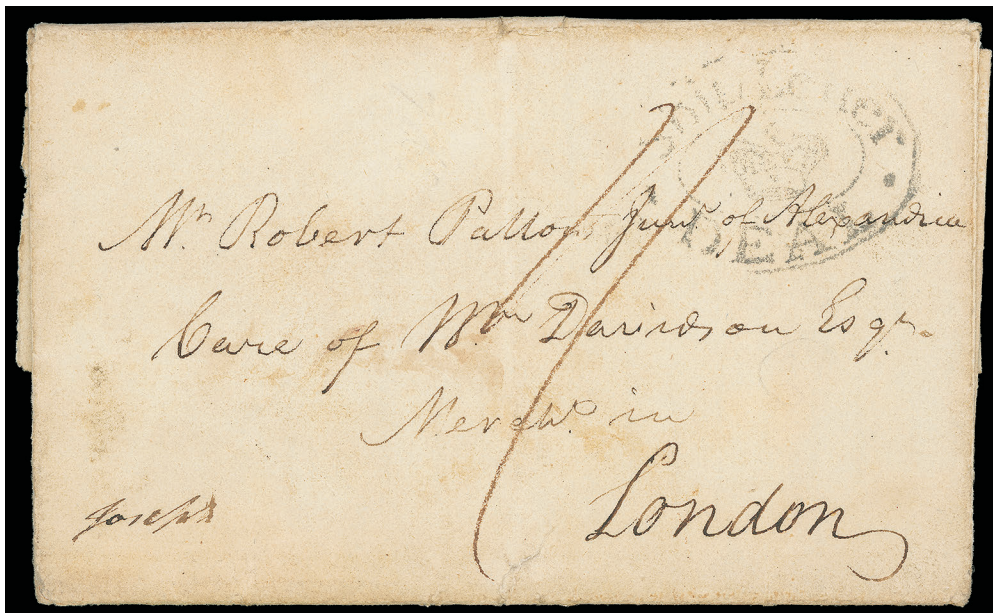 Ship Letter
DEAL
Mr. Robert Patton Junr. of Alexandria
Care of Wm Davidson Esqr.
Mercht. in
London
Joseph